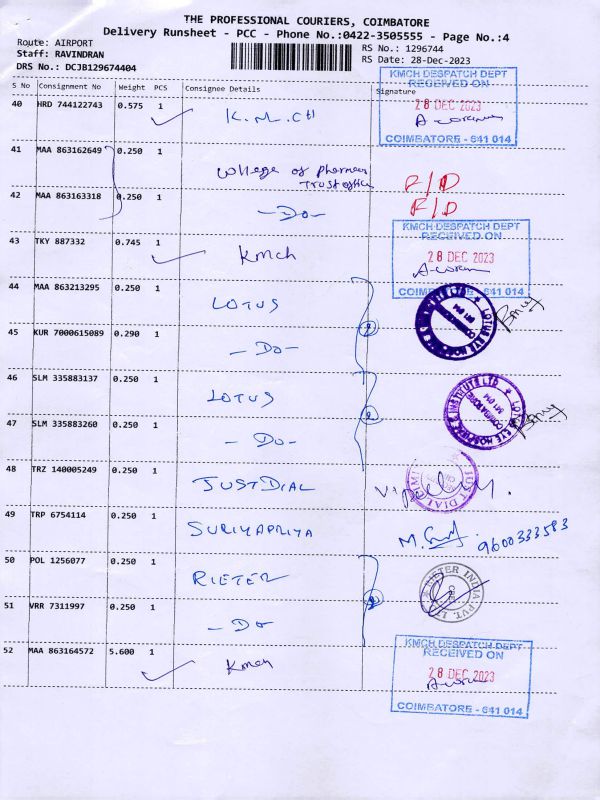 THE PROFESSIONAL COURIERS, COIMBATORE
Delivery Runsheet - PCC - Phone No.:0422-3505555 - Page No.:4
Route: AIRPORT
Staff: RAVINDRAN
DRS No.: DCJB129674404
RS No.: 1296744
RS Date: 28-Dec-2023
S No Consignment No Weight PCS Consignee Details Signature
KMCH DESPATCH DEPT
RECEIVED ON
28 DEC 2023
COIMBATORE - 641 014
40 HRD 744122743 0.575 1 K.M.CH
41 MAA 863162649 0.250 1 College of Pharmacy
Trust office F/D
42 MAA 863163318 0.250 1 -Do- F/D
KMCH DESPATCH DEPT
RECEIVED ON
28 DEC 2023
COIMBATORE - 641 014
43 TKY 887332 0.745 1 Kmch
44 MAA 863213295 0.250 1 LOTUS
LOTUS EYE HOSPITAL & INSTITUTE LTD
45 KUR 7000615089 0.290 1 -Do- 2
46 SLM 335883137 0.250 1 LOTUS
LOTUS EYE HOSPITAL & INSTITUTE LTD
COIMBATORE
641 014
47 SLM 335883260 0.250 1 -Do- 2
48 TRZ 140005249 0.250 1 JUSTDIAL
JUST DIAL
49 TRP 6754114 0.250 1 SURIYAPRIYA 9600333583
50 POL 1256077 0.250 1 RIETER
RIETER INDIA PVT. LTD
51 VRR 7311997 0.250 1 -Do 2
52 MAA 863164572 5.600 1 Kmch
KMCH DESPATCH DEPT
RECEIVED ON
28 DEC 2023
COIMBATORE - 641 014